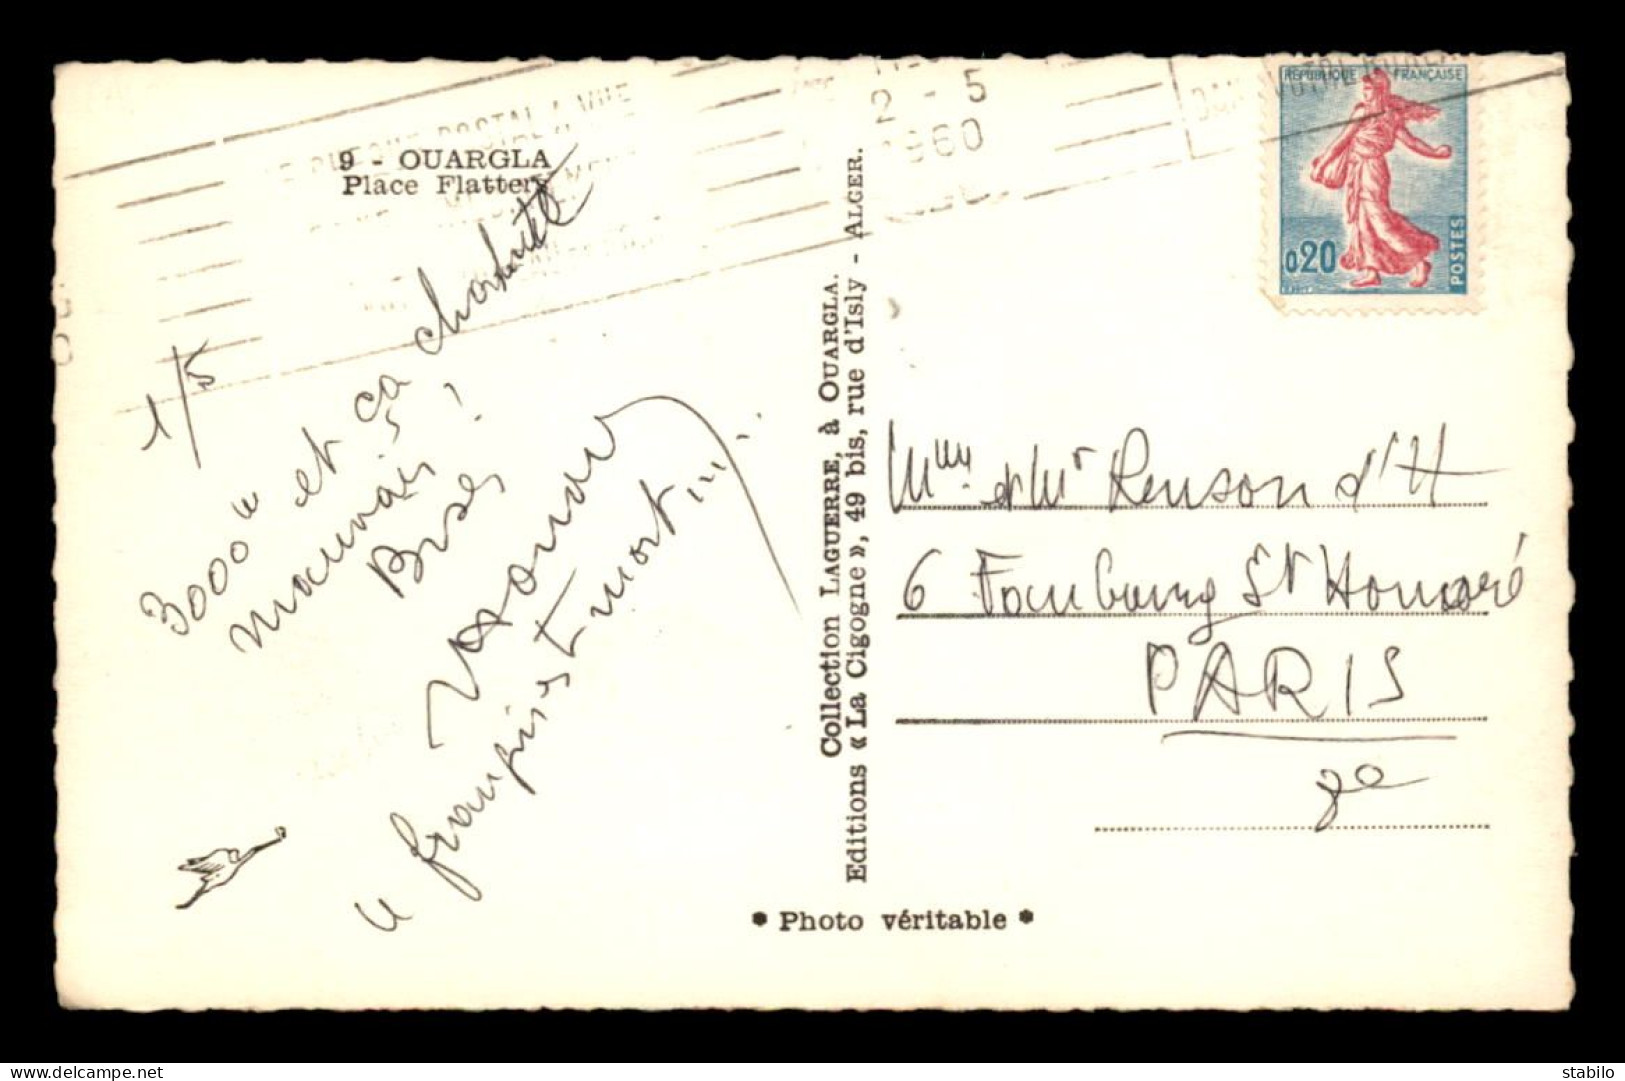 9 - OUARGLA
Place Flatters
1/5
3000 et ça
mauvais !
Bises
le français est mort ...
Collection LAGUERRE, à OUARGLA.
Editions « La Cigogne », 49 bis, rue d'Isly - ALGER.
* Photo véritable *
2 - 5
1960
RÉPUBLIQUE FRANÇAISE
0,20
POSTES
Renson d'H
6 Faubourg St Honoré
PARIS
8e
stabilo